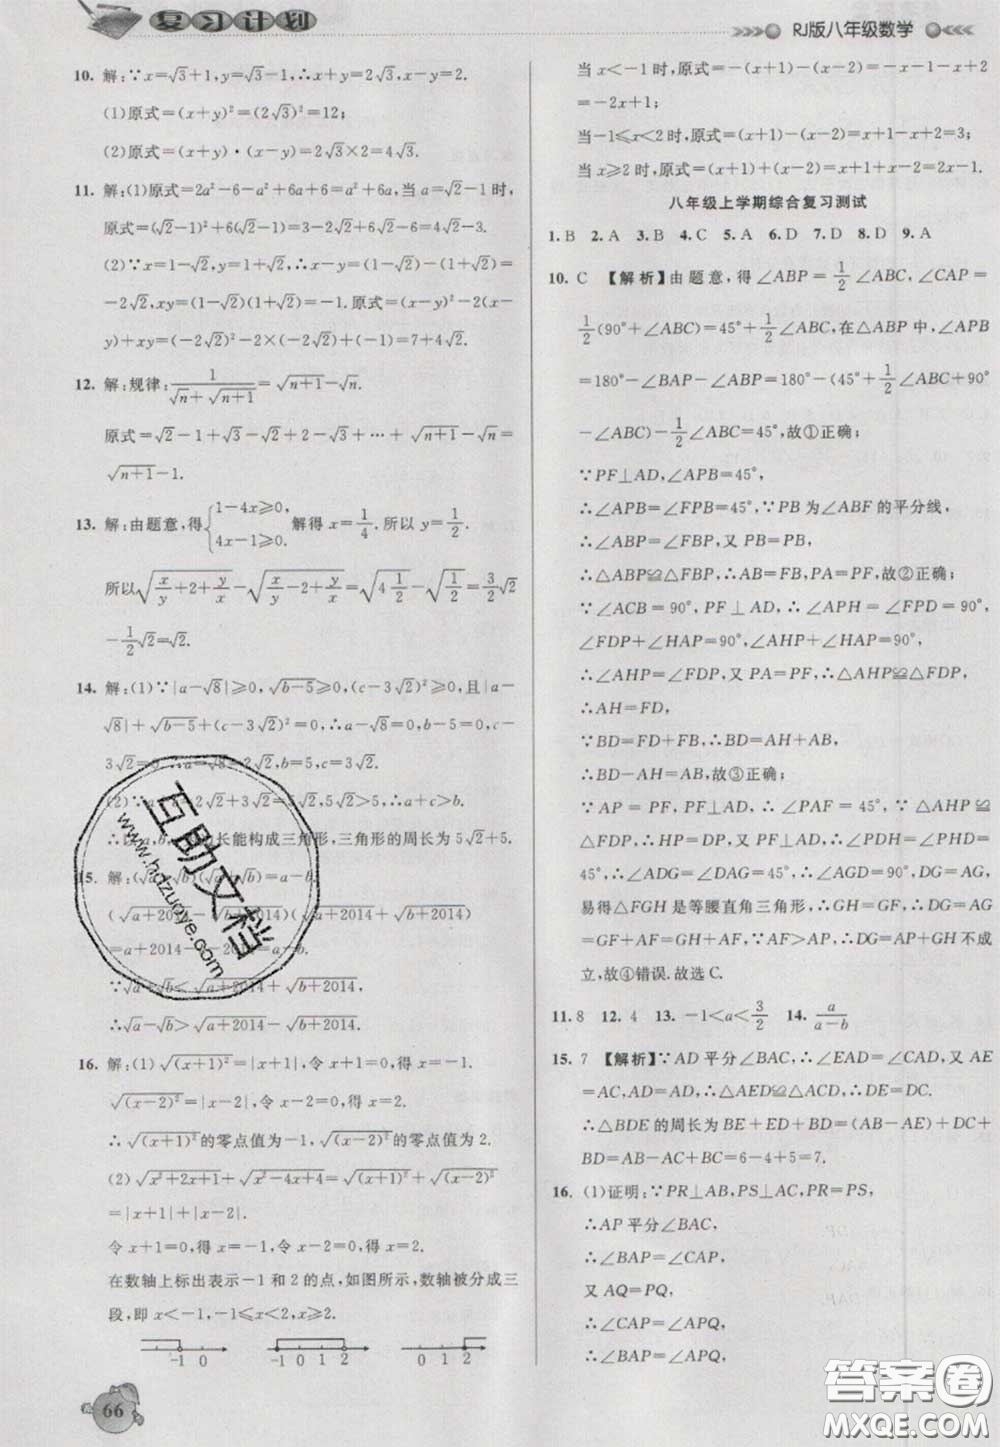 复习计划
RJ版八年级数学
10. 解:∵x=√3+1,y=√3-1,∴x+y=2√3,x-y=2.
(1)原式=(x+y)²=(2√3)²=12;
(2)原式=(x+y)·(x-y)=2√3×2=4√3.
11. 解:(1)原式=2a²-6-a²+6a+6=a²+6a,当a=√2-1时,
原式=(√2-1)²+6(√2-1)=3-2√2+6√2-6=4√2-3.
(2)∵x=1-√2,y=1+√2,∴x-y=(1-√2)-(1+√2)=
-2√2,xy=(1-√2)(1+√2)=-1.原式=(x-y)²-2(x-
y)+xy=(-2√2)²-2×(-2√2)+(-1)=7+4√2.
12. 解:规律:1/(√n+√(n+1))=√(n+1)-√n.
原式=√2-1+√3-√2+√3-√2+…+√(n+1)-√n=
√(n+1)-1.
13. 解:由题意,得{1-4x≥0, 4x-1≥0. 解得x=1/4. 所以y=1/2.
所以√(x/y+2+y/x)-√(x/y-2+y/x)=√(4 1/2)-√(1/2)=3/2√2
-1/2√2=√2.
14. 解:(1)∵|a-√8|≥0,√(b-5)≥0,(c-3√2)²≥0,且|a-
√8|+√(b-5)+(c-3√2)²=0,∴a-√8=0,b-5=0,c-
3√2=0.∴a=√8=2√2,b=5,c=3√2.
(2)∵2√2+3√2=5√2,5√2>5,∴a+c>b.
∴以a,b,长能构成三角形,三角形的周长为5√2+5.
15. 解:(√a+√b)(√a-√b)=a-b.
(√(a+2014)-√(b+2014))(√(a+2014)+√(b+2014))
=a+2014-b-2014=a-b.
∵√a+√b<√(a+2014)+√(b+2014),
∴√a-√b>√(a+2014)-√(b+2014).
16. 解:(1)√(x+1)²=|x+1|,令x+1=0,得x=-1.
√(x-2)²=|x-2|,令x-2=0,得x=2.
∴√(x+1)²的零点值为-1,√(x-2)²的零点值为2.
(2)√(x²+2x+1)+√(x²-4x+4)=√(x+1)²+√(x-2)²
=|x+1|+|x-2|.
令x+1=0,得x=-1.令x-2=0,得x=2.
在数轴上标出表示-1和2的点,如图所示,数轴被分成三
段,即x<-1,-1≤x<2,x≥2.
-1 0
-1 0 1 2
0 2
66
当x<-1时,原式=-(x+1)-(x-2)=-x-1-x+2
=-2x+1;
当-1≤x<2时,原式=(x+1)-(x-2)=x+1-x+2=3;
当x≥2时,原式=(x+1)+(x-2)=x+1+x-2=2x-1.
八年级上学期综合复习测试
1. B 2. A 3. B 4. C 5. A 6. D 7. D 8. D 9. A
10. C 【解析】由题意,得∠ABP=1/2∠ABC,∠CAP=
1/2(90°+∠ABC)=45°+1/2∠ABC,在△ABP中,∠APB
=180°-∠BAP-∠ABP=180°-(45°+1/2∠ABC+90°
-∠ABC)-1/2∠ABC=45°,故①正确;
∵PF⊥AD,∠APB=45°,
∴∠APB=∠FPB=45°,∵PB为∠ABF的平分线,
∴∠ABP=∠FBP,又PB=PB,
∴△ABP≌△FBP,∴AB=FB,PA=PF,故②正确;
∵∠ACB=90°,PF⊥AD,∴∠APH=∠FPD=90°,
∠FDP+∠HAP=90°,∠AHP+∠HAP=90°,
∴∠AHP=∠FDP,又PA=PF,∴△AHP≌△FDP,
∴AH=FD,
∵BD=FD+FB,∴BD=AH+AB,
∴BD-AH=AB,故③正确;
∵AP=PF,PF⊥AD,∴∠PAF=45°,∵△AHP≌
△FDP,∴HP=DP,又PF⊥AD,∴∠HDP=∠PHD=
45°,∴∠ADG=∠DAG=45°,∠DGA=90°,∴DG=AG,
易得△FGH是等腰直角三角形,∴GH=GF,∴DG=AG
=GF+AF=GH+AF,∵AF>AP,∴DG=AP+GH不成
立,故④错误.故选C.
11. 8 12. 4 13. -1<a<3/2 14. a/(a-b)
15. 7 【解析】∵AD平分∠BAC,∴∠EAD=∠CAD,又AE
=AC,AD=AD,∴△ADE≌△ADC,∴DE=DC.
∴△BDE的周长为BE+ED+BD=(AB-AE)+DC+
BD=AB-AC+BC=6-4+5=7.
16. (1)证明:∵PR⊥AB,PS⊥AC,PR=PS,
∴AP平分∠BAC,
∴∠BAP=∠CAP,
又AQ=PQ,
∴∠CAP=∠APQ,
∴∠BAP=∠APQ,
互助文档
www.hdzuoye.com
答案圈
MXQE.COM